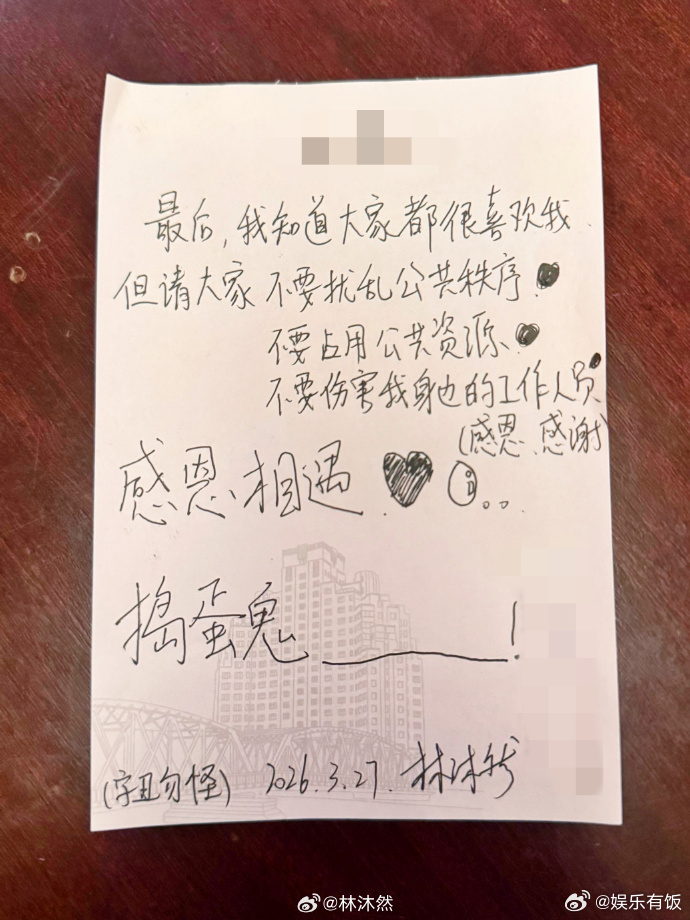 最后,我知道大家都很喜欢我.
但请大家 不要扰乱公共秩序!
不要占用公共资源.
不要伤害我身边的工作人员
(感恩、感谢)
感恩、相遇
捣蛋鬼 ______!
(字丑勿怪) 2026.3.27. 林沐然
@林沐然
@娱乐有饭